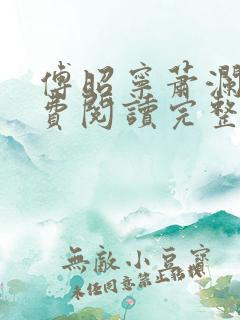 傅昭寧蕭瀾
費閱讀完整
無敵小豆寶
未經同意禁止搭撥